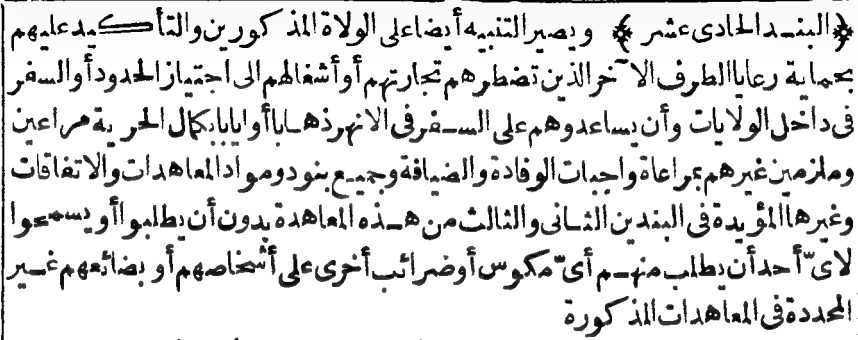 ﴿البند الحادى عشر﴾ ويصير التنبيه أيضا على الولاة المذكورين والتأكيد عليهم
بحماية رعايا الطرف الآخر الذين تضطرهم تجارتهم أو أشغالهم الى اجتياز الحدود أو السفر
فى داخل الولايات وأن يساعدوهم على السفر فى الانهر ذهابا أو ايابا بكمال الحرية مراعين
وملزمين غيرهم بمراعاة واجبات الوفادة والضيافة وجميع بنود ومواد المعاهدات والاتفاقات
وغيرها المؤيدة فى البندين الثانى والثالث من هذه المعاهدة بدون أن يطلبوا أو يسمحوا
لاىّ أحد أن يطلب منهم أىّ مكوس أو ضرائب أخرى على أشخاصهم أو بضائعهم غير
المحددة فى المعاهدات المذكورة